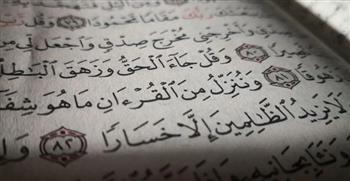 رَبُّكَ مَقَامًا مَّحْمُودًا ﴿٧٩﴾ وَقُل رَّبِّ
وَأَخْرِجْنِي مُخْرَجَ صِدْقٍ وَاجْعَل لِّي مِن
﴿٨٠﴾ وَقُلْ جَاءَ الْحَقُّ وَزَهَقَ الْبَاطِلُ
زَهُوقًا ﴿٨١﴾ وَنُنَزِّلُ مِنَ الْقُرْءَانِ مَا هُوَ شِفَا
لَا يَزِيدُ الظَّالِمِينَ إِلَّا خَسَارًا ﴿٨٢﴾ وَإِ
وَنَـَٔا بِجَانِبِهِ وَإِذَا